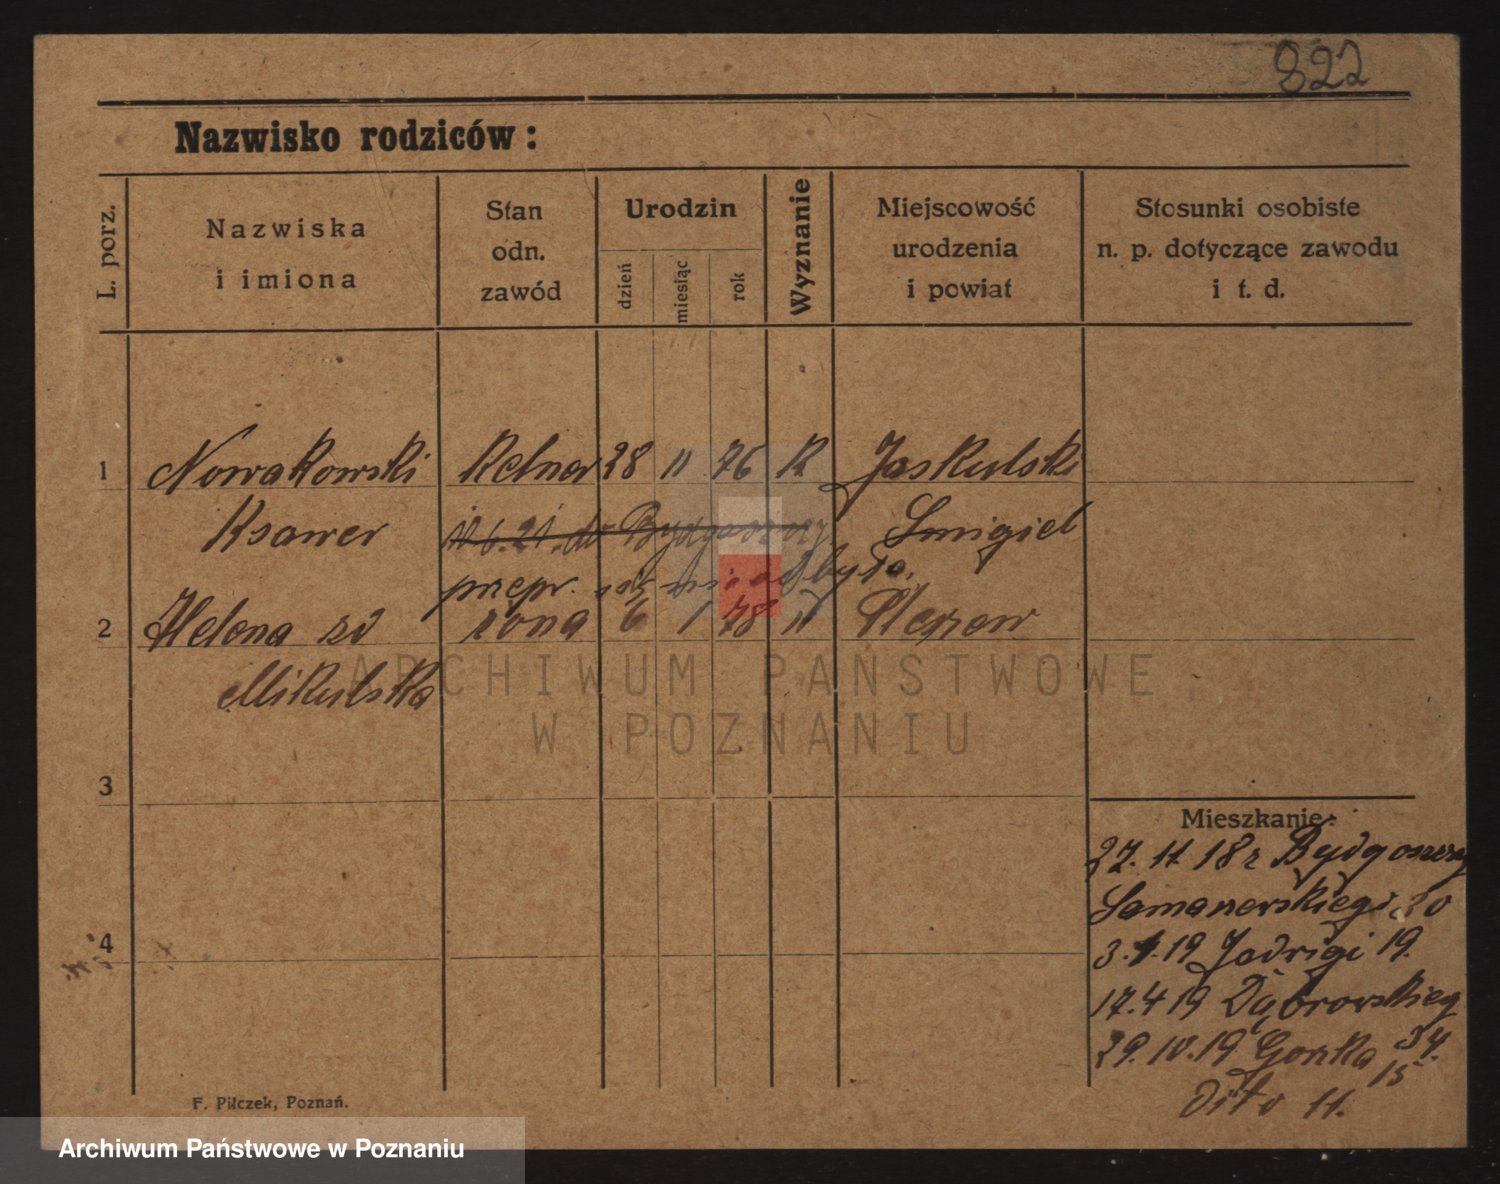 822
Nazwisko rodziców:
L. porz.
Nazwiska
i imiona
Stan
odn.
zawód
Urodzin
dzień
miesiąc
rok
Wyznanie
Miejscowość
urodzenia
i powiat
Stosunki osobiste
n. p. dotyczące zawodu
i t. d.
1 Nowakowski Kelner 28 11 76 K Jaskulski
Ksawer Smigiel
10.6.21. do Bydgoszczy
przepr. się nie odbyło.
2 Helena zd żona 6 1 78 " Pleszew
Mikulska
ARCHIWUM PAŃSTWOWE
W POZNANIU
3
4
Mieszkanie:
27. 11. 18 z Bydgoszczy
3.1.19 Jadwigi 19.
17.4 19 Dąbrowskieg
34.
29.10.19 Gorska 15
dito 11.
F. Pilczek, Poznań.
Archiwum Państwowe w Poznaniu